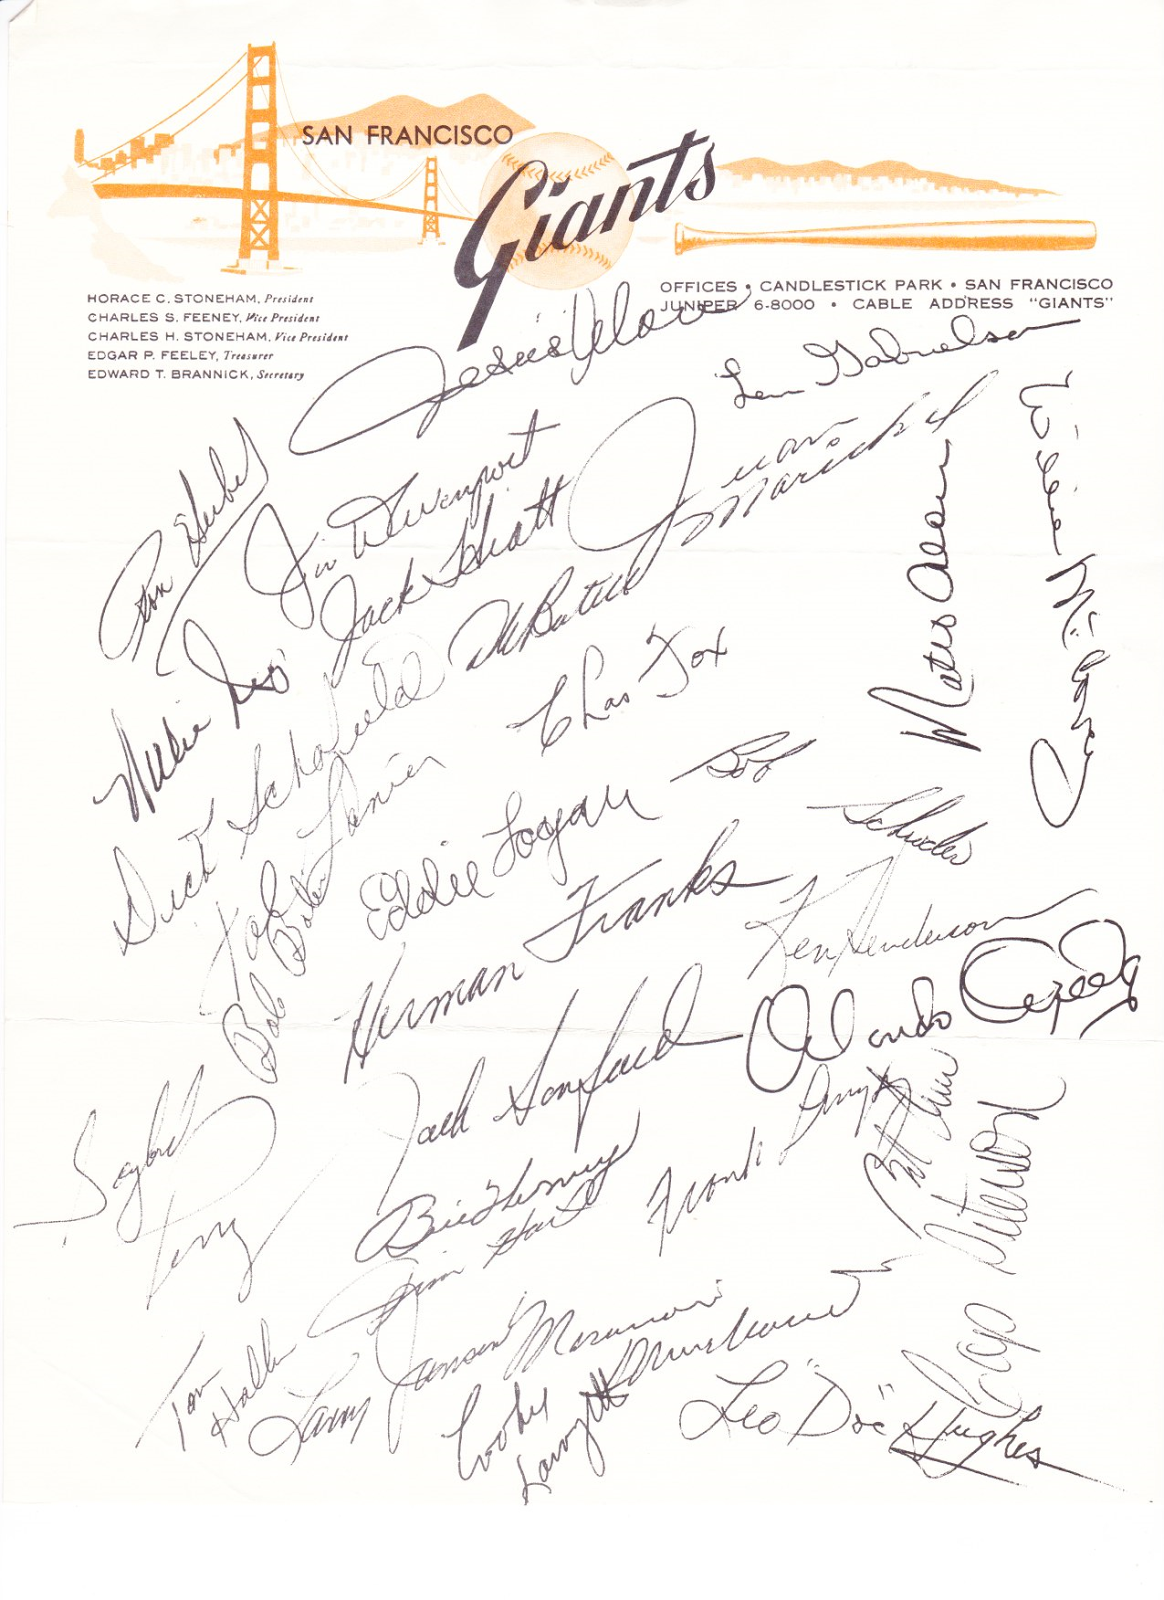 SAN FRANCISCO
Giants
HORACE C. STONEHAM, President
CHARLES S. FEENEY, Vice President
CHARLES H. STONEHAM, Vice President
EDGAR P. FEELEY, Treasurer
EDWARD T. BRANNICK, Secretary
OFFICES • CANDLESTICK PARK • SAN FRANCISCO
JUNIPER 6-8000 • CABLE ADDRESS "GIANTS"
Jesus Alou
Len Gabrielson
Ron Herbel
Jim Davenport
Juan
Marichal
Willie McCovey
Jack Hiatt
Mateo Alou
Dick Schofield
Chas Fox
Hal Lanier
Bob
Schroder
Eddie Logan
Bob Bolin
Herman Franks
Ken Henderson
Orlando Cepeda
Jack Sanford
Gaylord
Perry
Bill Henry
Jim Hart
Frank Linzy
Cap Peterson
Tom
Haller
Larry Jansen
Masanori
Murakami
Cookie
Lavagetto
Leo "Doc" Hughes